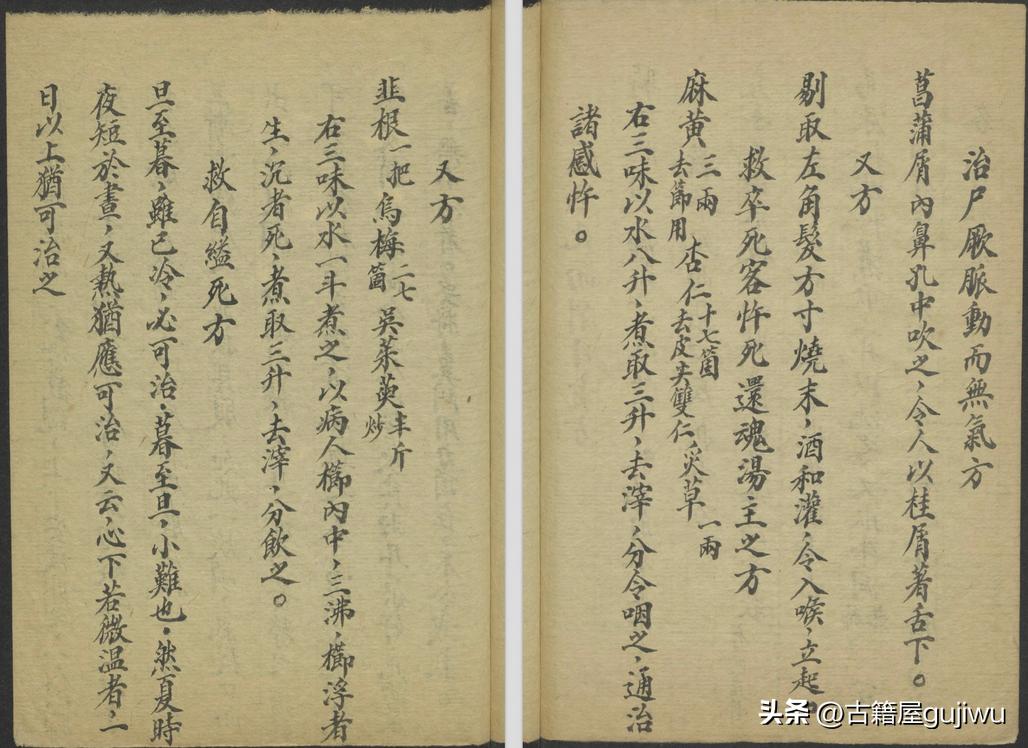 治尸厥脈動而無氣方
菖蒲屑內鼻孔中吹之，令人以桂屑著舌下。
又方
剔取左角髮方寸燒末，酒和灌，令入喉，立起
救卒死客忤死還魂湯主之方
麻黃三兩去節用 杏仁十七箇去皮尖雙仁 炙草一兩
右三味以水八升，煮取三升，去滓，分令咽之，通治
諸感忤。
又方
韭根一把 烏梅二七箇 吳茱萸半斤炒
右三味以水一斗煮之，以病人櫛內中，三沸，櫛浮者
生，沉者死，煮取三升，去滓，分飲之。
救自縊死方
旦至暮，雖已冷，必可治，暮至旦，小難也，然夏時
夜短於晝，又熱猶應可治，又云，心下若微溫者，一
日以上猶可治之
头条 @古籍屋gujiwu